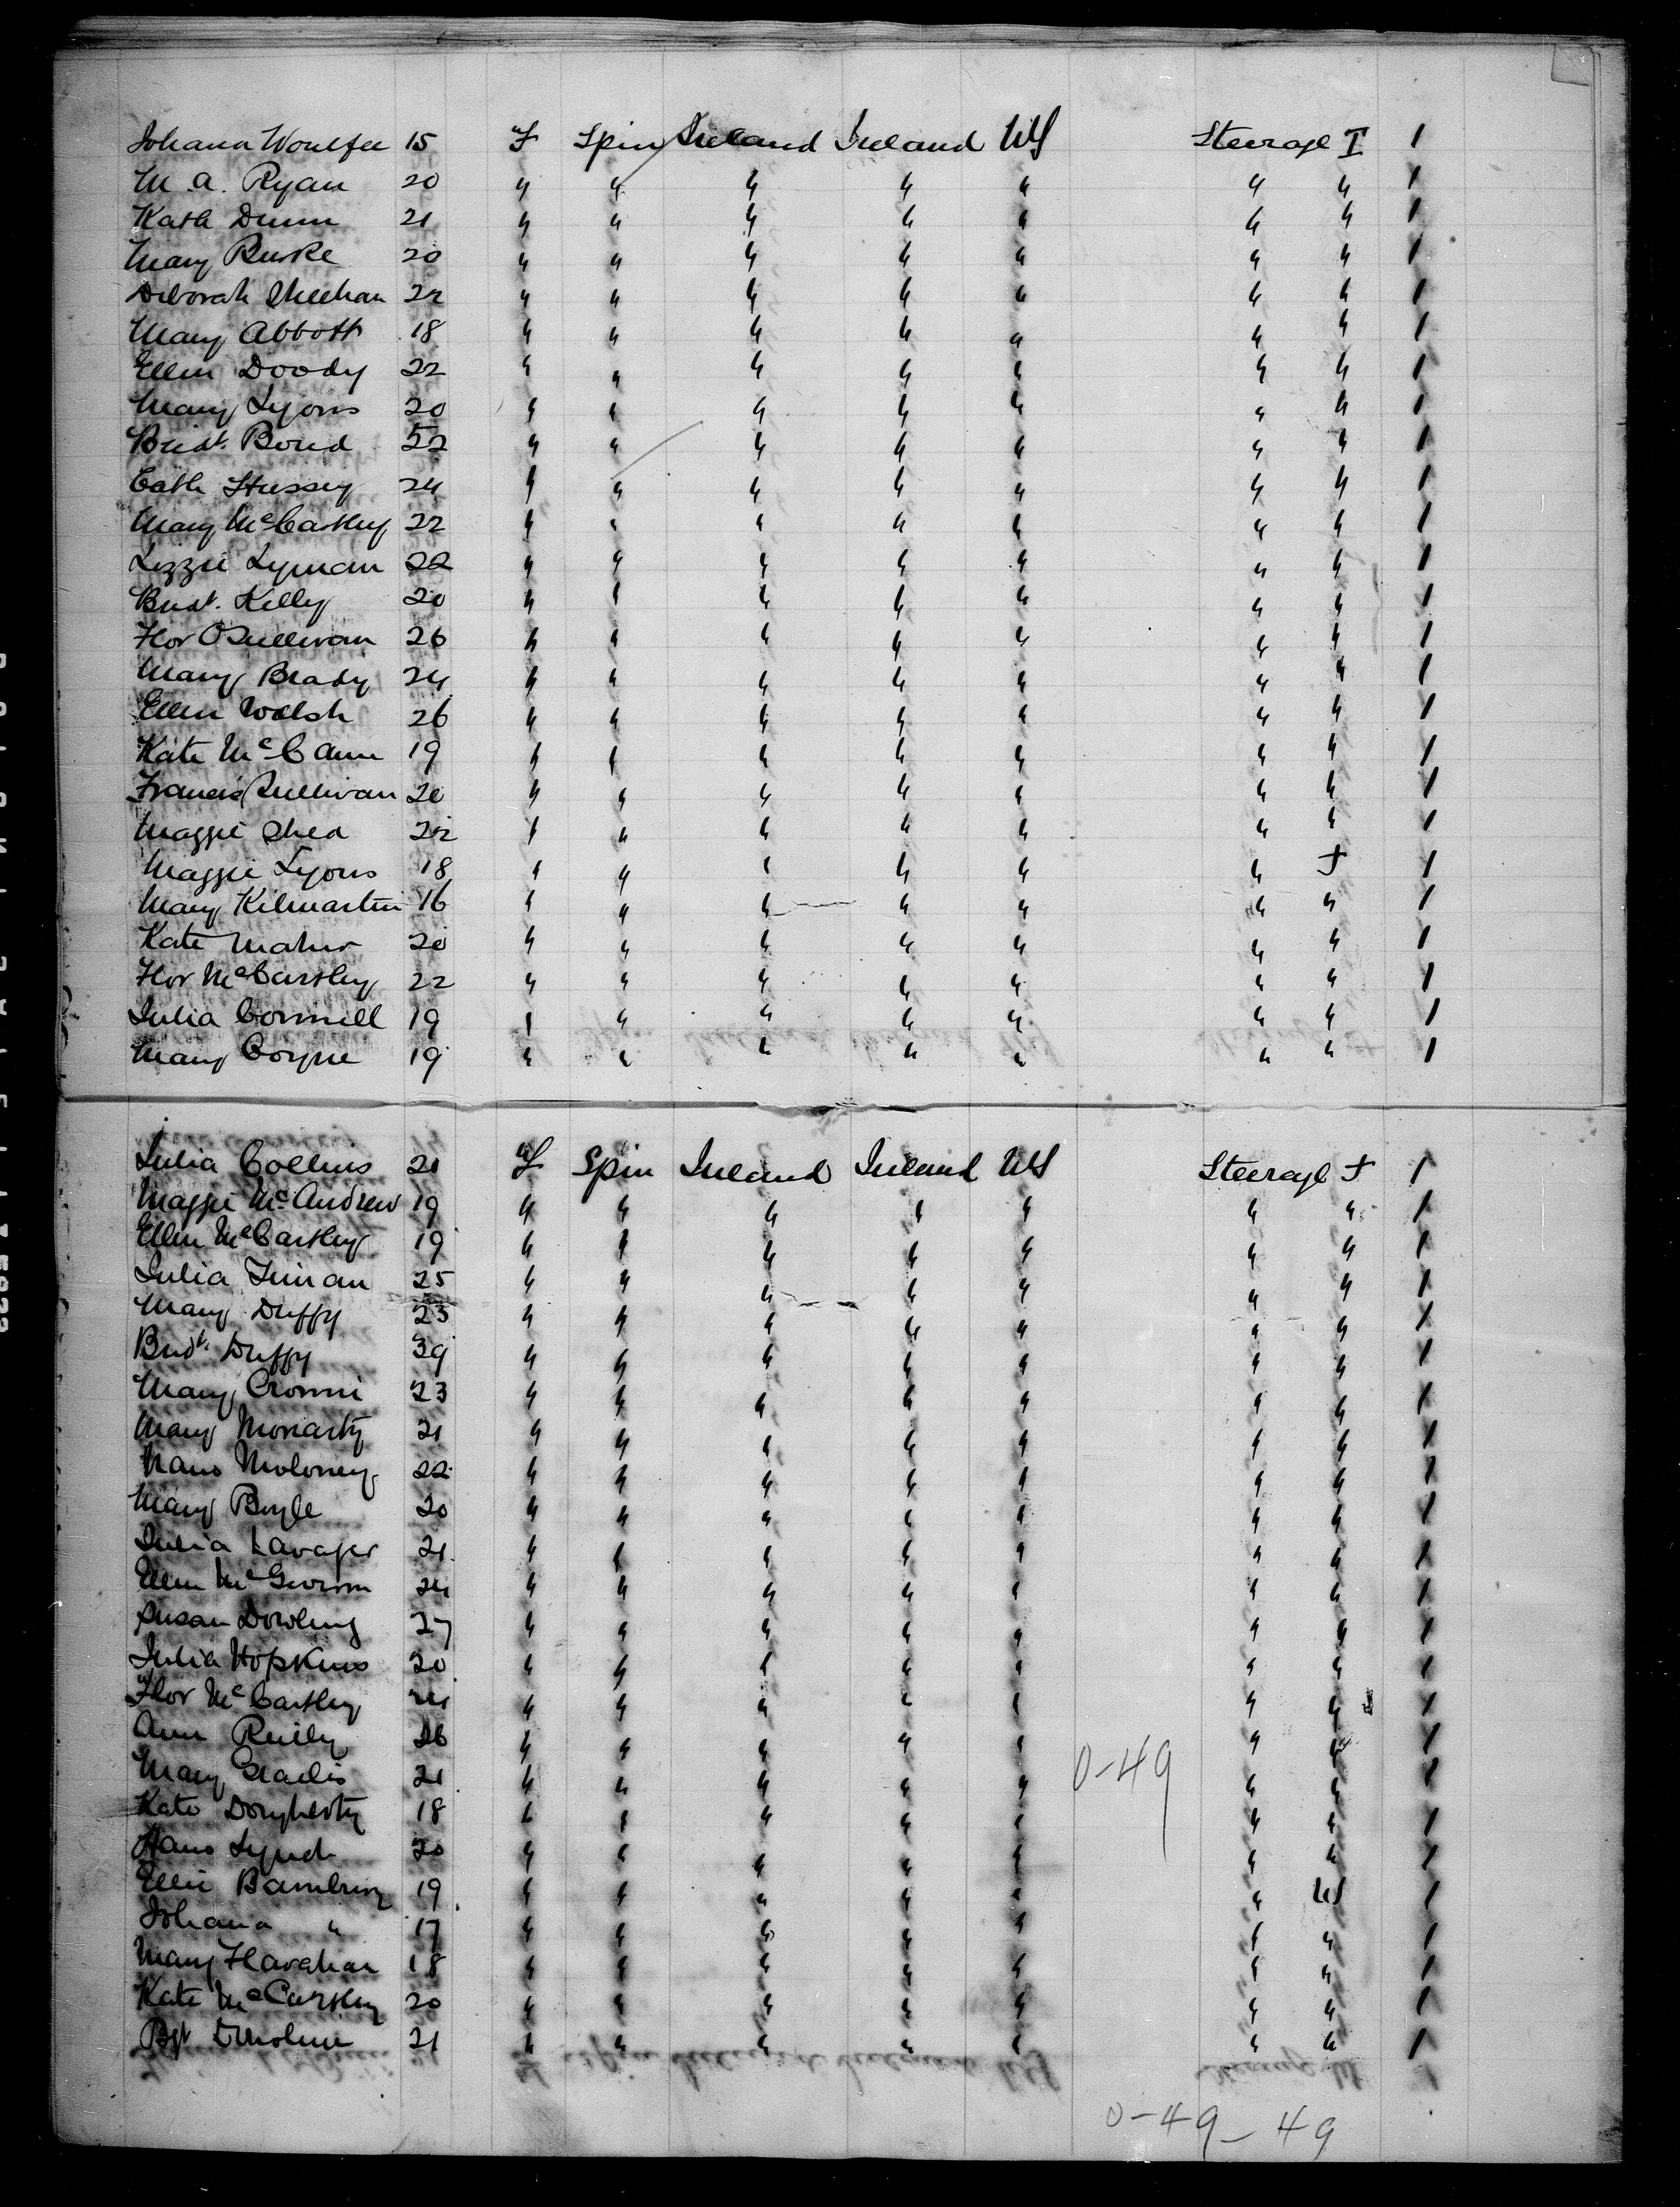 Johana Woulfee 15 F Spin Ireland Ireland US Steerage I 1
M. A. Ryan 20 " " " " " " " 1
Kath Dunn 21 " " " " " " " 1
Mary Burke 20 " " " " " " " 1
Deborah Sheehan 22 " " " " " " " 1
Mary Abbott 18 " " " " " " " 1
Ellen Doody 22 " " " " " " " 1
Mary Lyons 20 " " " " " " " 1
Bridt. Bond 52 " " " " " " " 1
Cath Hussey 24 " " " " " " " 1
Mary McCarthy 22 " " " " " " " 1
Lizzie Lyman 22 " " " " " " " 1
Bridt. Kelly 20 " " " " " " " 1
Hor OSullivan 26 " " " " " " " 1
Mary Brady 24 " " " " " " " 1
Ellen Walsh 26 " " " " " " " 1
Kate McCann 19 " " " " " " " 1
Francis Sullivan 20 " " " " " " " 1
Maggie Shea 22 " " " " " " " 1
Maggie Lyons 18 " " " " " " I 1
Mary Kilmartin 16 " " " " " " " 1
Kate Maher 20 " " " " " " " 1
Hor McCarthy 22 " " " " " " " 1
Julia Connell 19 " " " " " " " 1
Mary Coyne 19 " " " " " " " 1
Julia Collins 21 F Spin Ireland Ireland US Steerage I 1
Maggie McAndrew 19 " " " " " " " 1
Ellen McCarthy 19 " " " " " " " 1
Julia Finan 25 " " " " " " " 1
Mary Duffy 23 " " " " " " " 1
Bridt. Duffy 39 " " " " " " " 1
Mary Cronin 23 " " " " " " " 1
Mary Moriarty 21 " " " " " " " 1
Hano Moloney 22 " " " " " " " 1
Mary Boyle 20 " " " " " " " 1
Julia 21 " " " " " " " 1
Ellen McGovern 24 " " " " " " " 1
Susan Dowling 27 " " " " " " " 1
Julia Hopkins 20 " " " " " " " 1
Hor McCarthy 24 " " " " " " " 1
Ann Reilly 26 " " " " " " " 1
Mary 21 " " " " " 0-49 " " 1
Kate Dougherty 18 " " " " " " " 1
Hano Lynch 20 " " " " " " " 1
Ellie Bambury 19 " " " " " " US 1
Johana " 17 " " " " " " " 1
Mary Hanahan 18 " " " " " " " 1
Kate McCarthy 20 " " " " " " " 1
Bgt 21 " " " " " " " 1
0-49-49